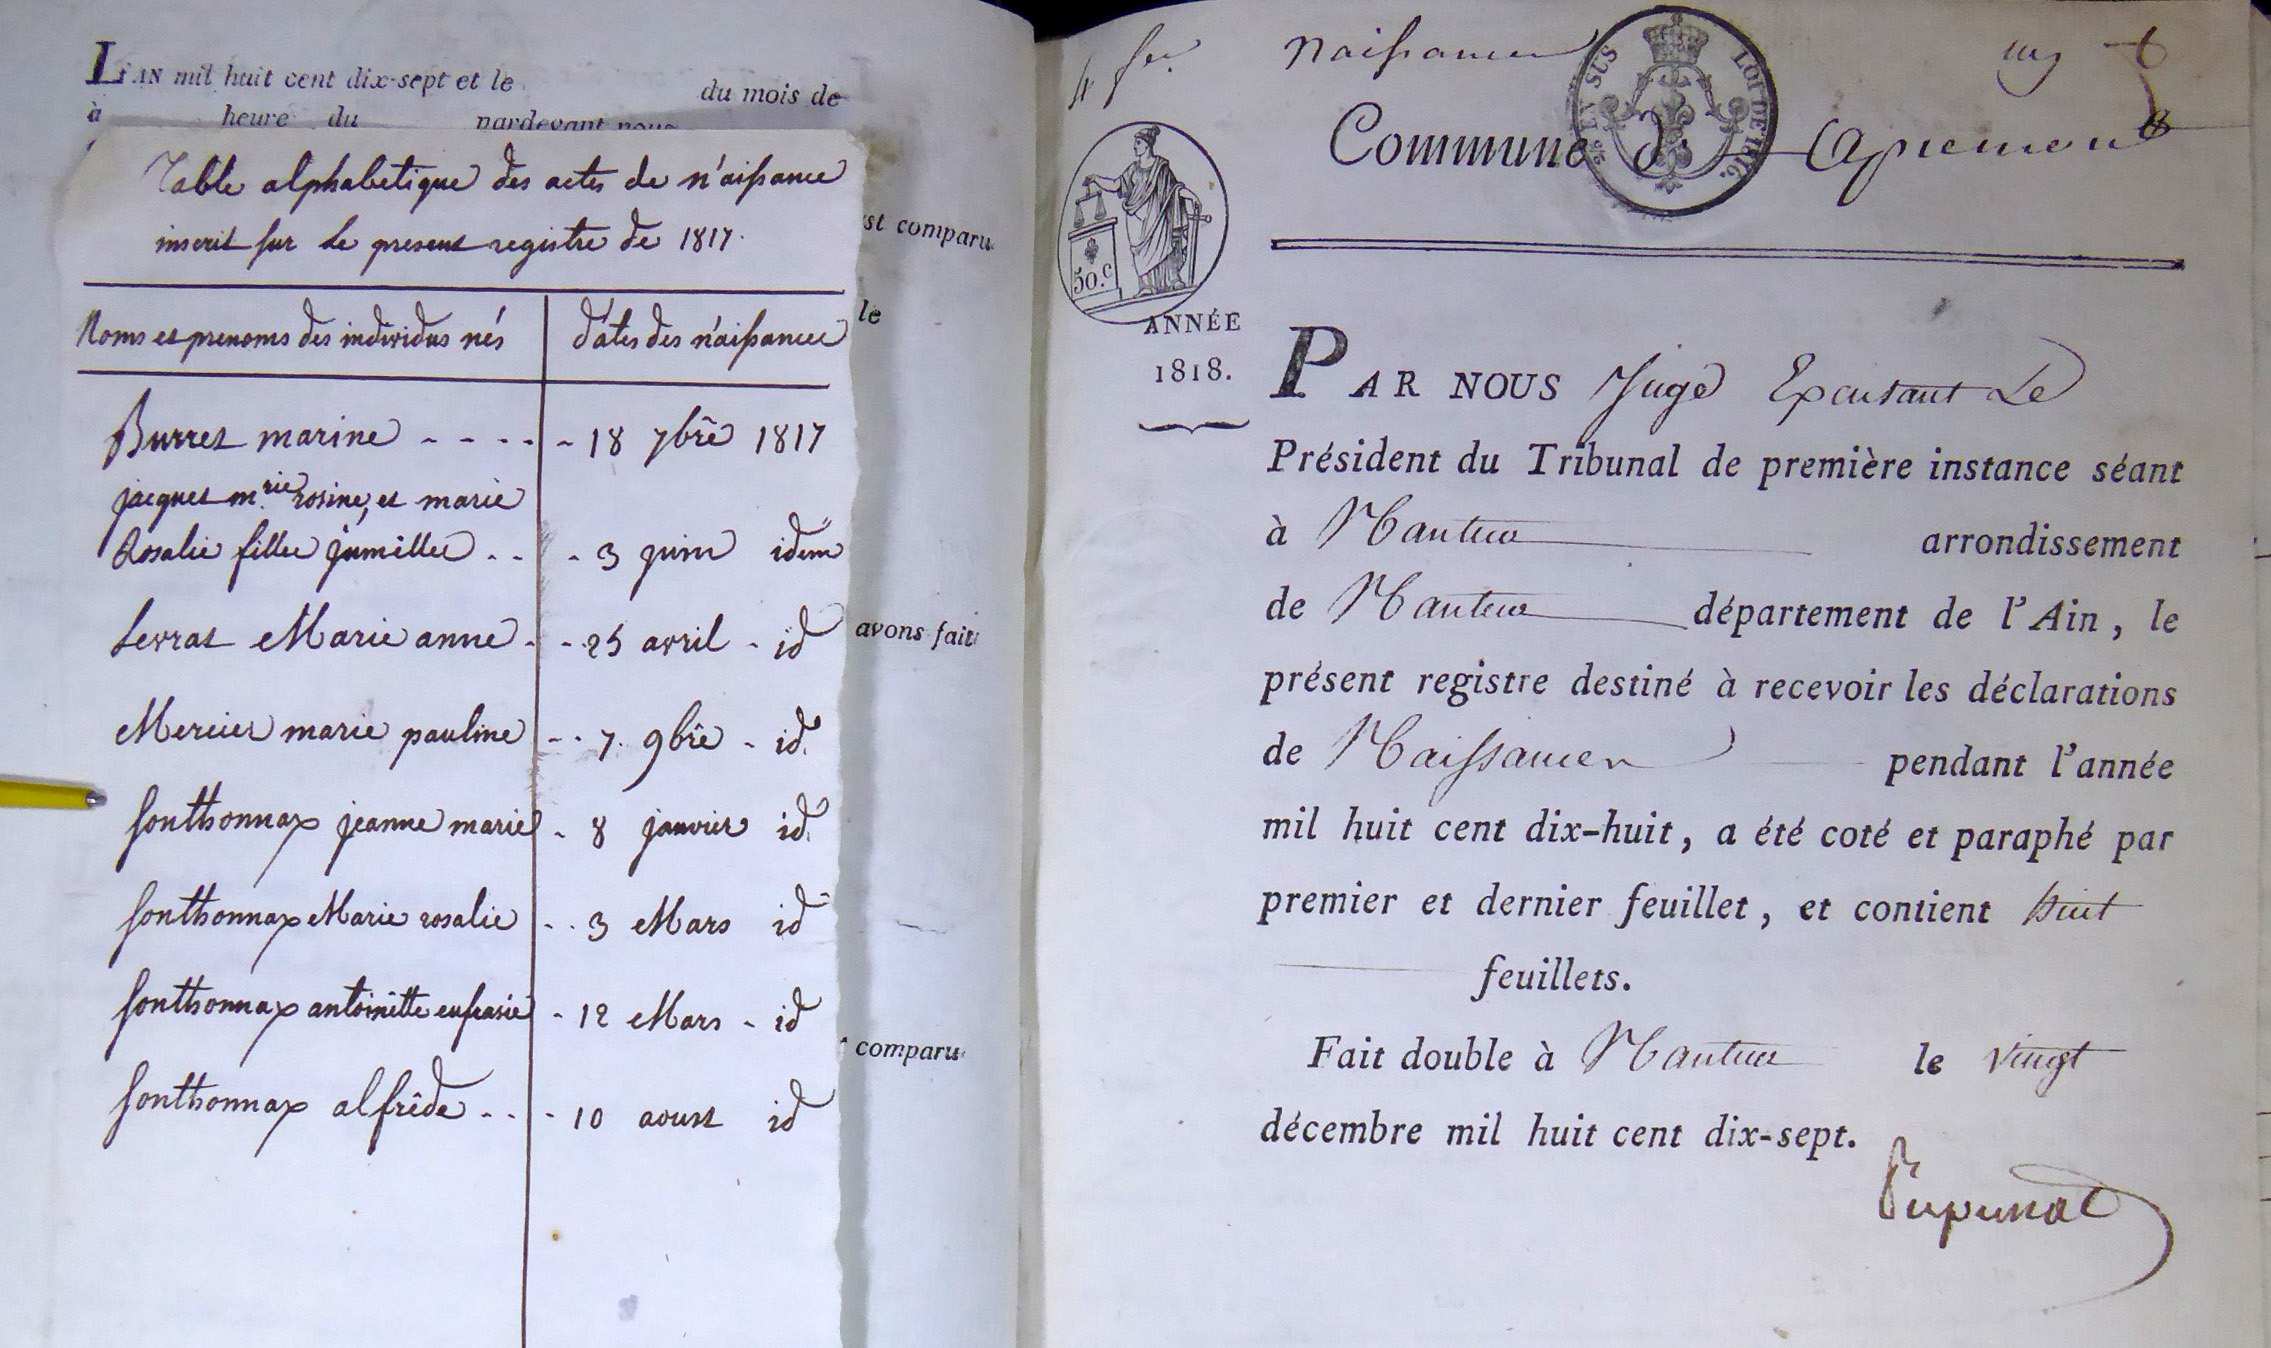 L'AN mil huit cent dix-sept et le du mois de
à heure du pardevant nous
Table alphabetique des actes de n'aissance
inscrit sur le present registre de 1817.
Noms et prenoms des individus nés d'ates des n'aissances
Burret marine - - - - - 18 7bre 1817
jacquet m.rie rosine, et marie
Rosalie filles jumelles - - - 3 juin idem
Levrat Marie anne - - - 25 avril - id
Mercier marie pauline - - 7. 9bre - id.
sonthonnax jeanne marie - 8 janvier id.
sonthonnax Marie rosalie - - 3 Mars id
sonthonnax antoinette eufrasie - 12 Mars - id
sonthonnax alfrêde - - - 10 aoust id
st comparu
le
avons fait
comparu
4 fr. Naissances
EN SUS LOI DE 1816.
Commune d' Apremont
50.c
ANNÉE
1818.
PAR NOUS Juge Excusant Le
Président du Tribunal de première instance séant
à Nantua arrondissement
de Nantua département de l'Ain, le
présent registre destiné à recevoir les déclarations
de Naissances pendant l'année
mil huit cent dix-huit, a été coté et paraphé par
premier et dernier feuillet, et contient huit
feuillets.
Fait double à Nantua le vingt
décembre mil huit cent dix-sept.